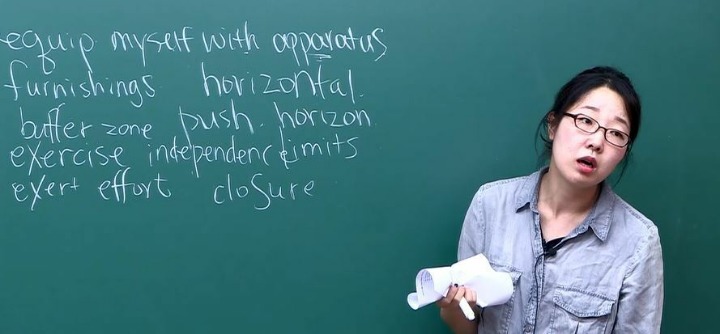 equip myself with apparatus
furnishings horizontal.
buffer zone push horizon
exercise independence limits
exert effort closure